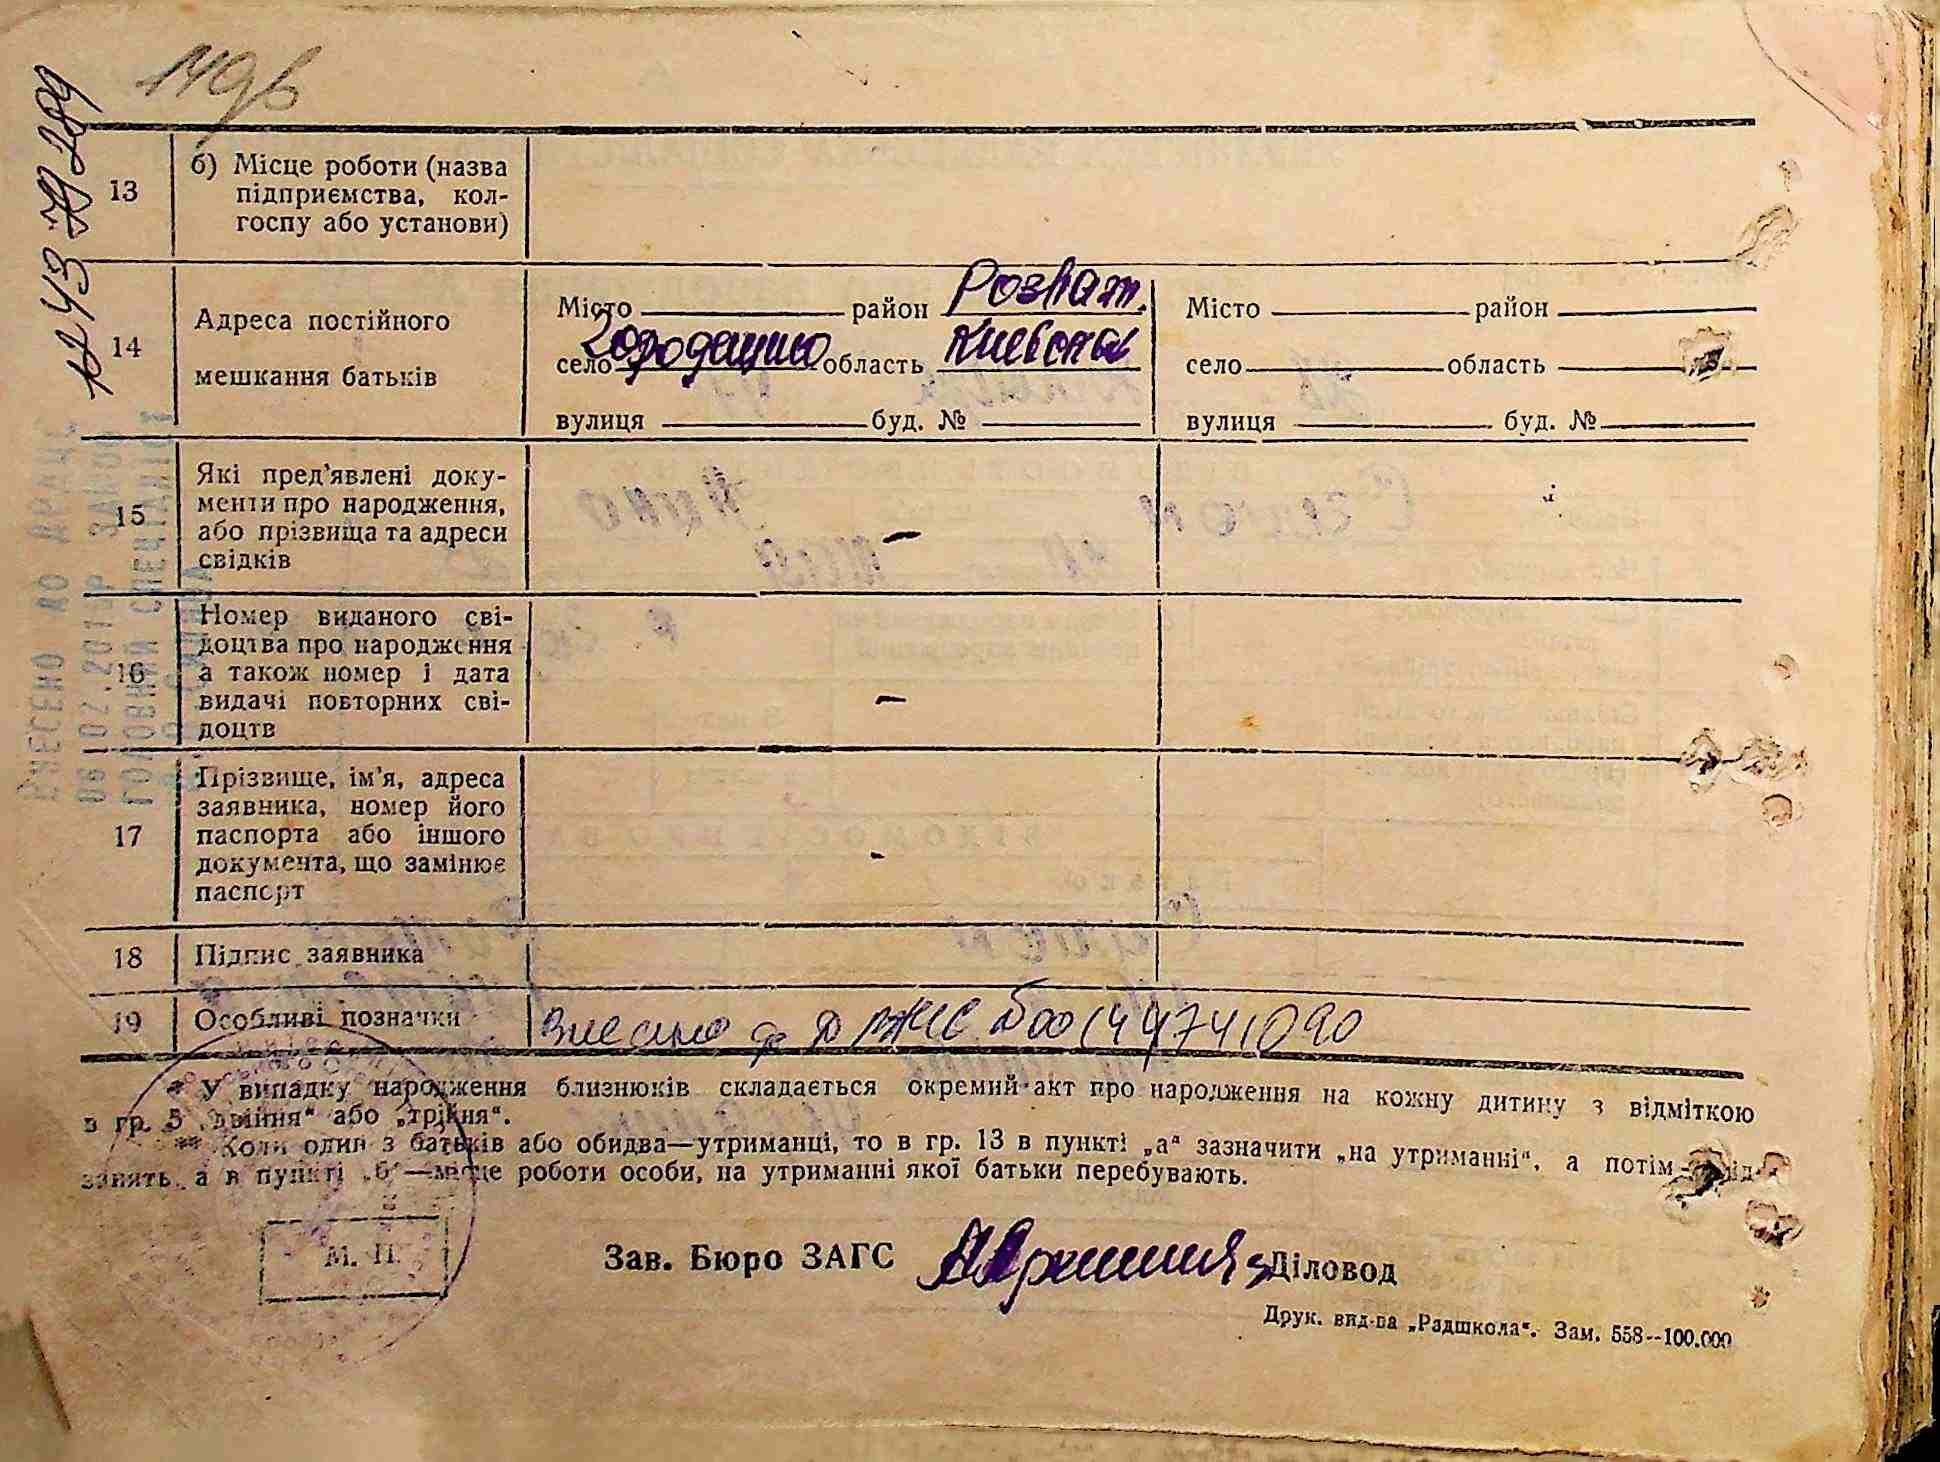 149в
13
б) Місце роботи (назва
підприємства, кол-
госпу або установи)
14
Адреса постійного
мешкання батьків
Місто район Розваж.
село Городещино область Киевская
вулиця буд. №
Місто район
село область
вулиця буд. №
15
Які пред'явлені доку-
менти про народження,
або прізвища та адреси
свідків
–
16
Номер виданого сві-
доцтва про народження
а також номер і дата
видачі повторних сві-
доцтв
–
17
Прізвище, ім'я, адреса
заявника, номер його
паспорта або іншого
документа, що замінює
паспорт
-
18
Підпис заявника
19
Особливі позначки
Внесено до
* У випадку народження близнюків складається окремий акт про народження на кожну дитину з відміткою
в гр. 5 „двійня“ або „трійня“.
** Коли один з батьків або обидва—утриманці, то в гр. 13 в пункті „а“ зазначити „на утриманні“, а потім
занять, а в пункті „б“—місце роботи особи, на утриманні якої батьки перебувають.
М. П.
Зав. Бюро ЗАГС
Діловод
Друк. вид-ва „Радшкола“. Зам. 558--100.000
ВНЕСЕНО ДО